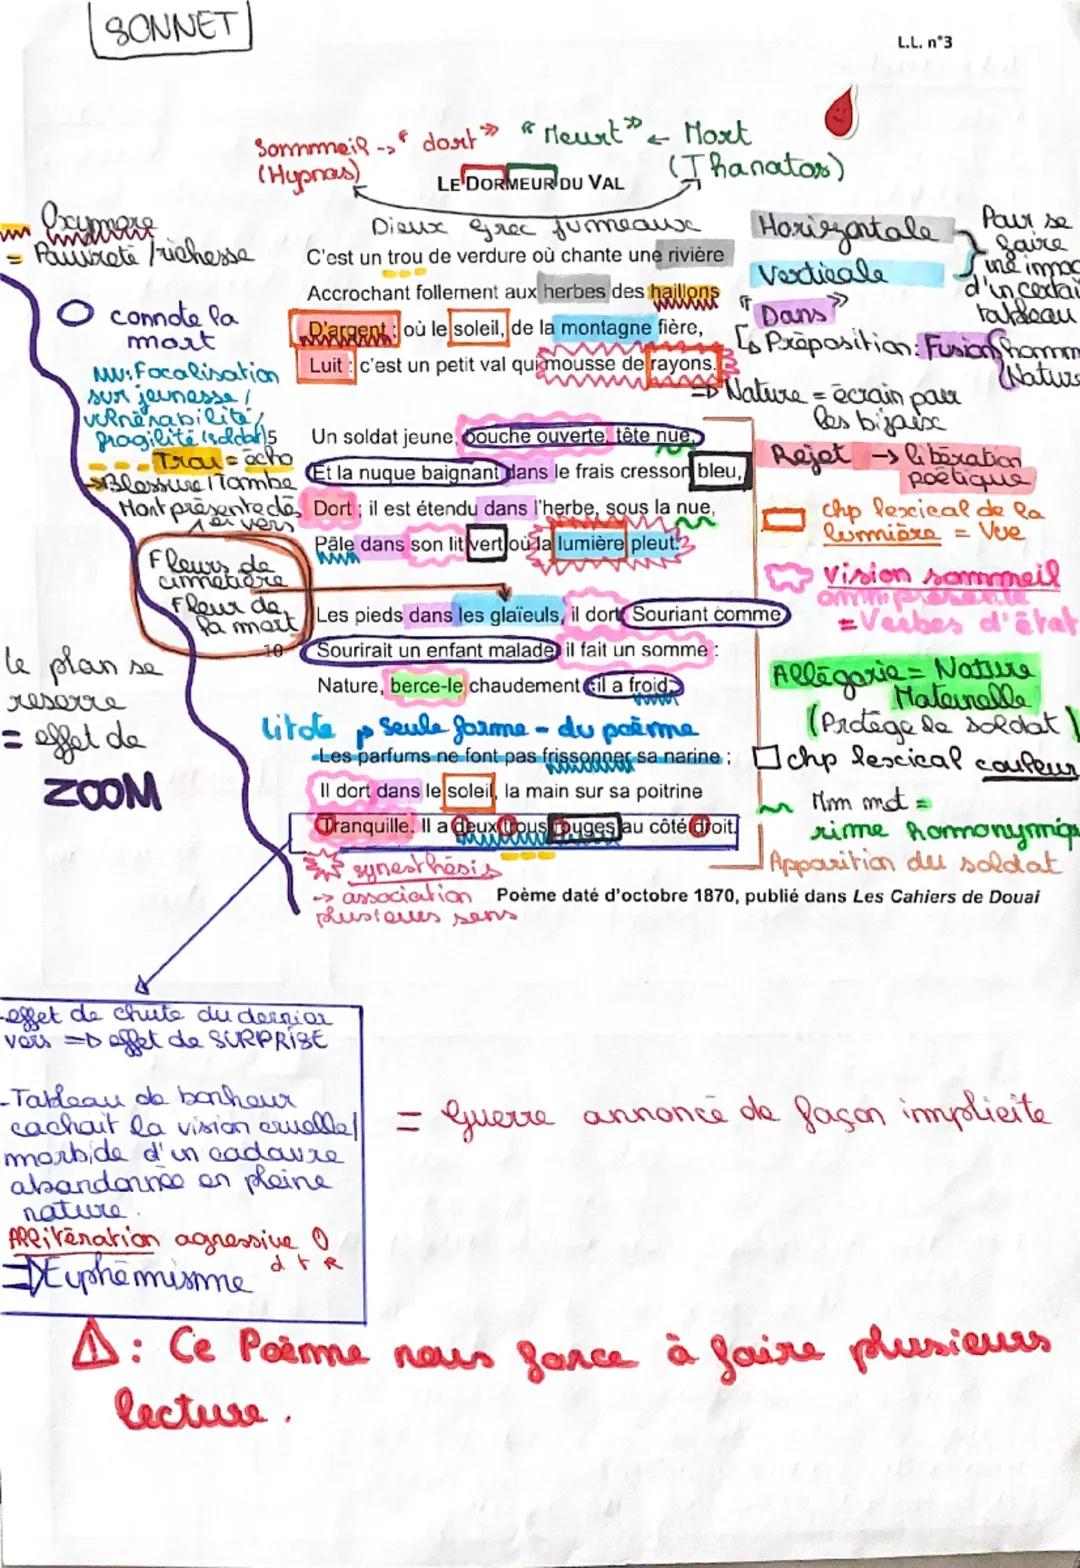 SONNET
L.L. n°3
Sommeil -> "dort" "Meurt" <- Mort
(Hypnos) (Thanatos)
LE DORMEUR DU VAL
Dieux grec jumeaux
Oxymore
= Pauvreté / richesse
connote la
mort
: Focalisation
sur jeunesse /
vulnérabilité /
fragilité (soldat)
Trou = écho
Blessure / Tombe
Mort présente dès
1er vers
Fleurs de
cimetière
Fleur de
la mort
le plan se
reserre
= effet de
ZOOM
C'est un trou de verdure où chante une rivière
Accrochant follement aux herbes des haillons
D'argent ; où le soleil, de la montagne fière,
Luit : c'est un petit val qui mousse de rayons.
5
Un soldat jeune, bouche ouverte, tête nue,
Et la nuque baignant dans le frais cresson bleu,
Dort ; il est étendu dans l'herbe, sous la nue,
Pâle dans son lit vert où la lumière pleut.
Les pieds dans les glaïeuls, il dort. Souriant comme
10
Sourirait un enfant malade, il fait un somme :
Nature, berce-le chaudement : il a froid.
Litote
Seule forme - du poème
Les parfums ne font pas frissonner sa narine ;
Il dort dans le soleil, la main sur sa poitrine
Tranquille. Il a deux trous rouges au côté droit.
synesthésis
-> association
plusieurs sens
Poème daté d'octobre 1870, publié dans Les Cahiers de Douai
Horizontale
Verticale
Pour se
faire
d'un certai
tableau
"Dans"
Préposition : Fusion homm
Nature
=> Nature = écrain pour
les bijoux
Rejet -> libération
poétique
chp lexical de la
lumière = Vue
Vision sommeil
omniprésente
= Verbes d'état
Allégorie = Nature
Maternelle
(Protège le soldat)
chp lexical couleur
Mm mot =
rime homonymiqu
Apparition du soldat
-effet de chute du dernier
vers => effet de SURPRISE
-Tableau de bonheur
cachait la vision cruelle/
morbide d'un cadavre
abandonnée en pleine
nature.
Allitération agressive
d t R
=> Euphémisme
= Guerre annoncé de façon implicite
⚠ : Ce Poème nous force à faire plusieurs
lecture.